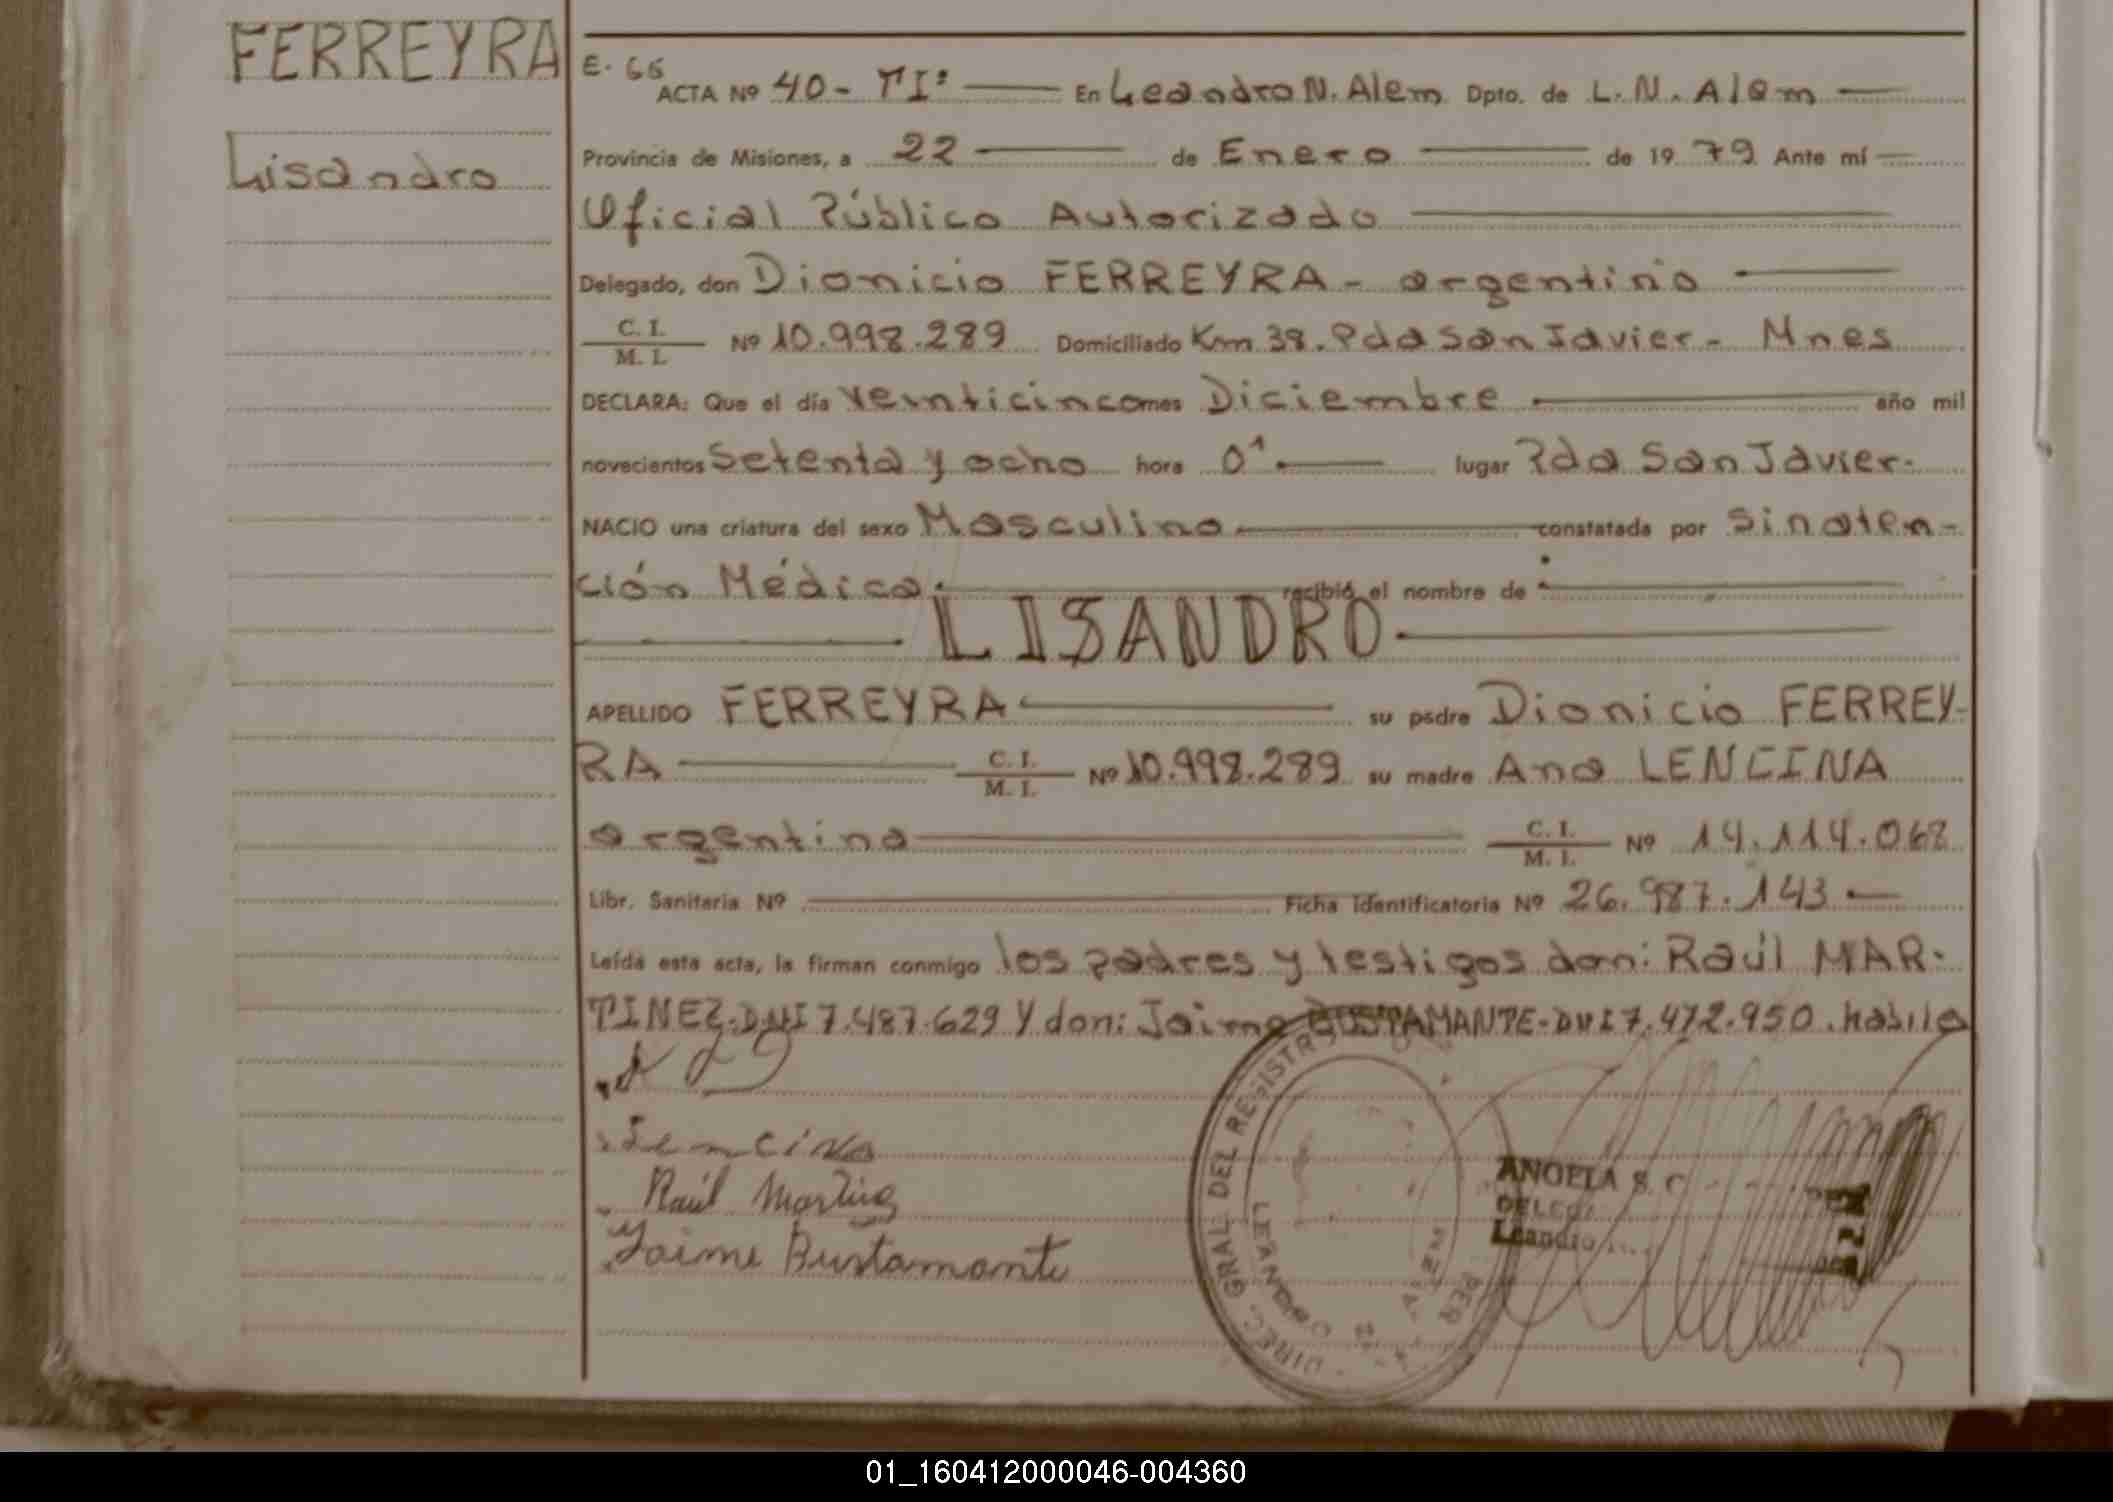 FERREYRA
Lisandro
E. 66
ACTA Nº 40 - TIº En Leandro N. Alem Dpto. de L. N. Alem
Provincia de Misiones, a 22 de Enero de 1979 Ante mí
Oficial Público Autorizado
Delegado, don Dionicio FERREYRA - argentino
C. I. / M. I. Nº 10.998.289 Domiciliado Km 38. Pda San Javier - Mnes
DECLARA: Que el día veinticinco mes Diciembre año mil
novecientos Setenta y ocho hora 0ª lugar Pda San Javier.
NACIO una criatura del sexo Masculino constatada por Sin aten-
ción Médica recibió el nombre de
LISANDRO
APELLIDO FERREYRA su padre Dionicio FERREY-
RA C. I. / M. I. Nº 10.998.289 su madre Ana LENCINA
argentina C. I. / M. I. Nº 14.114.068
Libr. Sanitaria Nº Ficha Identificatoria Nº 26.987.143
Leída esta acta, la firman conmigo los padres y testigos don: Raúl MAR-
TINEZ-DNI 7.487.629 y don: Jaime BUSTAMANTE-DNI 7.472.950. habile
Lencina
Raúl Martinez
Jaime Bustamante
DIREC. GRAL DEL REGISTR
LEANDRO ALEM
PER
ANGELA S.
DELEG
Leandro
01_160412000046-004360